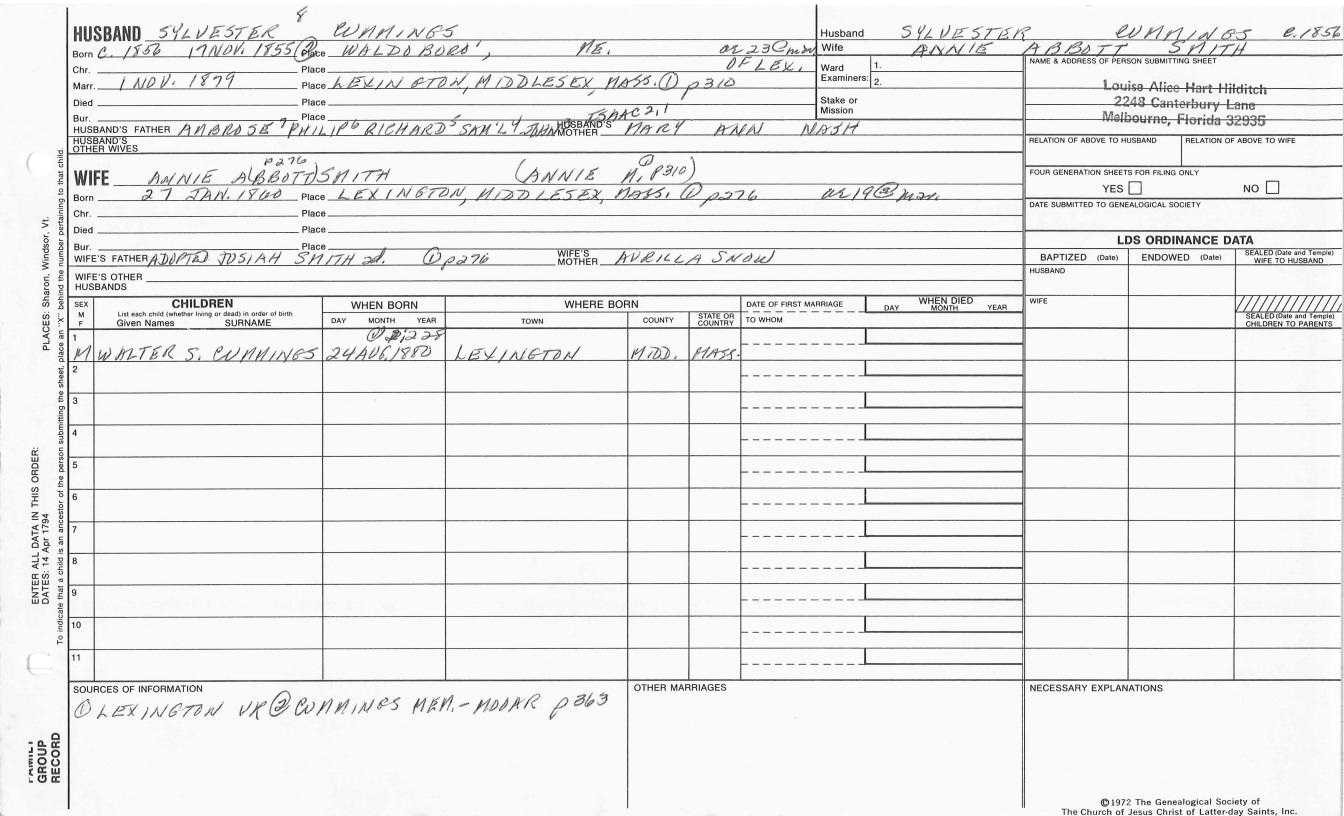 8
HUSBAND SYLVESTER CUMMINGS
Born C. 1856 17 NOV. 1855 ② Place WALDOBORO', ME. ae 23 @ mar
Chr. Place OF LEX.
Marr. 1 NOV. 1879 Place LEXINGTON, MIDDLESEX, MASS. ① p310
Died Place
Bur. Place ISAAC 2,1
HUSBAND'S FATHER AMBROSE 7 PHILIP 6 RICHARD 5 SAM'L 4 JOHN HUSBAND'S MOTHER MARY ANN NASH
HUSBAND'S OTHER WIVES
p276 ①
WIFE ANNIE A(BBOTT) SMITH (ANNIE A. p310)
Born 27 JAN. 1860 Place LEXINGTON, MIDDLESEX, MASS. ① p276 ae 19 @ mar.
Chr. Place
Died Place
Bur. Place
WIFE'S FATHER ADOPTED JOSIAH SMITH 2d. ① p276 WIFE'S MOTHER AURILLA SNOW
WIFE'S OTHER HUSBANDS
Husband SYLVESTER CUMMINGS C. 1856
Wife ANNIE ABBOTT SMITH
Ward 1.
Examiners: 2.
Stake or Mission
NAME & ADDRESS OF PERSON SUBMITTING SHEET
Louise Alice Hart Hilditch
2248 Canterbury Lane
Melbourne, Florida 32935
RELATION OF ABOVE TO HUSBAND RELATION OF ABOVE TO WIFE
FOUR GENERATION SHEETS FOR FILING ONLY
YES NO
DATE SUBMITTED TO GENEALOGICAL SOCIETY
LDS ORDINANCE DATA
BAPTIZED (Date) ENDOWED (Date) SEALED (Date and Temple) WIFE TO HUSBAND
HUSBAND
WIFE
SEALED (Date and Temple) CHILDREN TO PARENTS
SEX M F CHILDREN WHEN BORN WHERE BORN DATE OF FIRST MARRIAGE WHEN DIED
List each child (whether living or dead) in order of birth
Given Names SURNAME DAY MONTH YEAR TOWN COUNTY STATE OR COUNTRY TO WHOM DAY MONTH YEAR
1 ① 228
M WALTER S. CUMMINGS 24 AUG. 1880 LEXINGTON MIDD. MASS.
2
3
4
5
6
7
8
9
10
11
SOURCES OF INFORMATION
① LEXINGTON VR ② CUMMINGS MEM. - MOOAR p363
OTHER MARRIAGES
NECESSARY EXPLANATIONS
©1972 The Genealogical Society of
The Church of Jesus Christ of Latter-day Saints, Inc.
ENTER ALL DATA IN THIS ORDER:
DATES: 14 Apr 1794 PLACES: Sharon, Windsor, Vt.
To indicate that a child is an ancestor of the person submitting the sheet, place an "X" behind the number pertaining to that child.
FAMILY
GROUP
RECORD